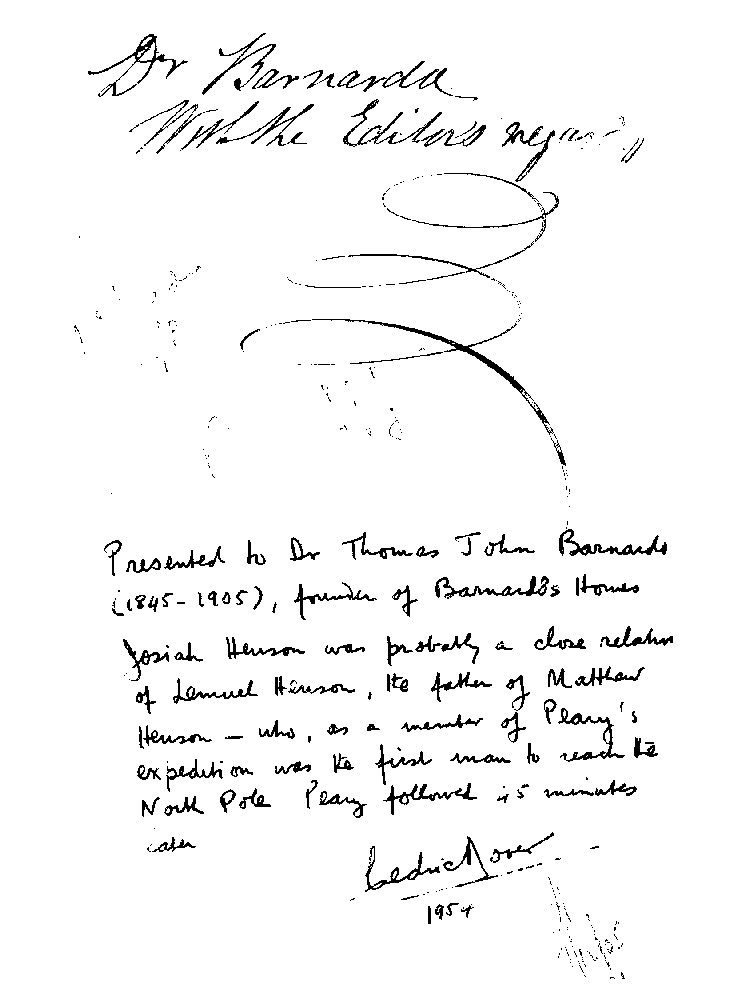 Dr Barnardo
With the Editor's regards
Presented to Dr Thomas John Barnardo
(1845-1905), founder of Barnardo's Homes
Josiah Henson was probably a close relation
of Lemuel Henson, the father of Matthew
Henson – who, as a member of Peary's
expedition was the first man to reach the
North Pole Peary followed 45 minutes
later
Cedric Dover
1954